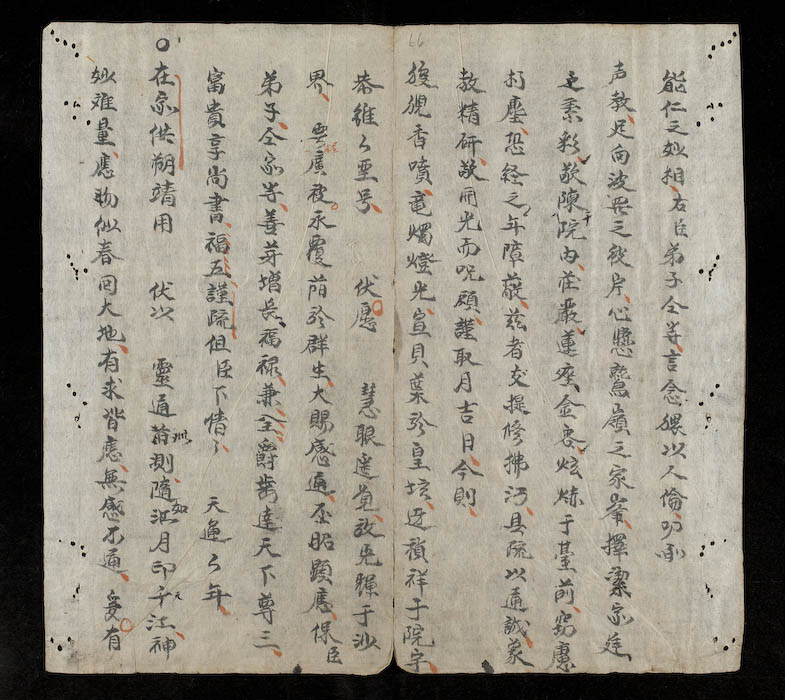 能仁之妙相右臣弟子仝等言念猥以人倫叨承
声教足向波之彼岸心懸鷲嶺之家峯擇潔家筵
之素彩敬陳院内庄嚴蓮座金容炫于臺前窃慮
打塵恐経之年障蔽兹者爰提修拂具疏以通誠蒙
教精研敬開光而咒願謹取月吉日今則
猊香噴竜燭燈光宣貝葉於皇坛迓禎祥于院宇
恭維厶聖号 伏愿 慧眼遥放輝于沙
界雲廣被永覆荫於群生大賜感通丕昭顕應保臣
弟子仝家等善芽增長福禄兼全爵齿達天下尊三
富貴享尚書福五謹疏但臣下情〻 天運厶年
○在家供朔靖用 伏以 靈通測隨如江月印千江神
妙难量應物似春回大地有求皆應無感不通爰有